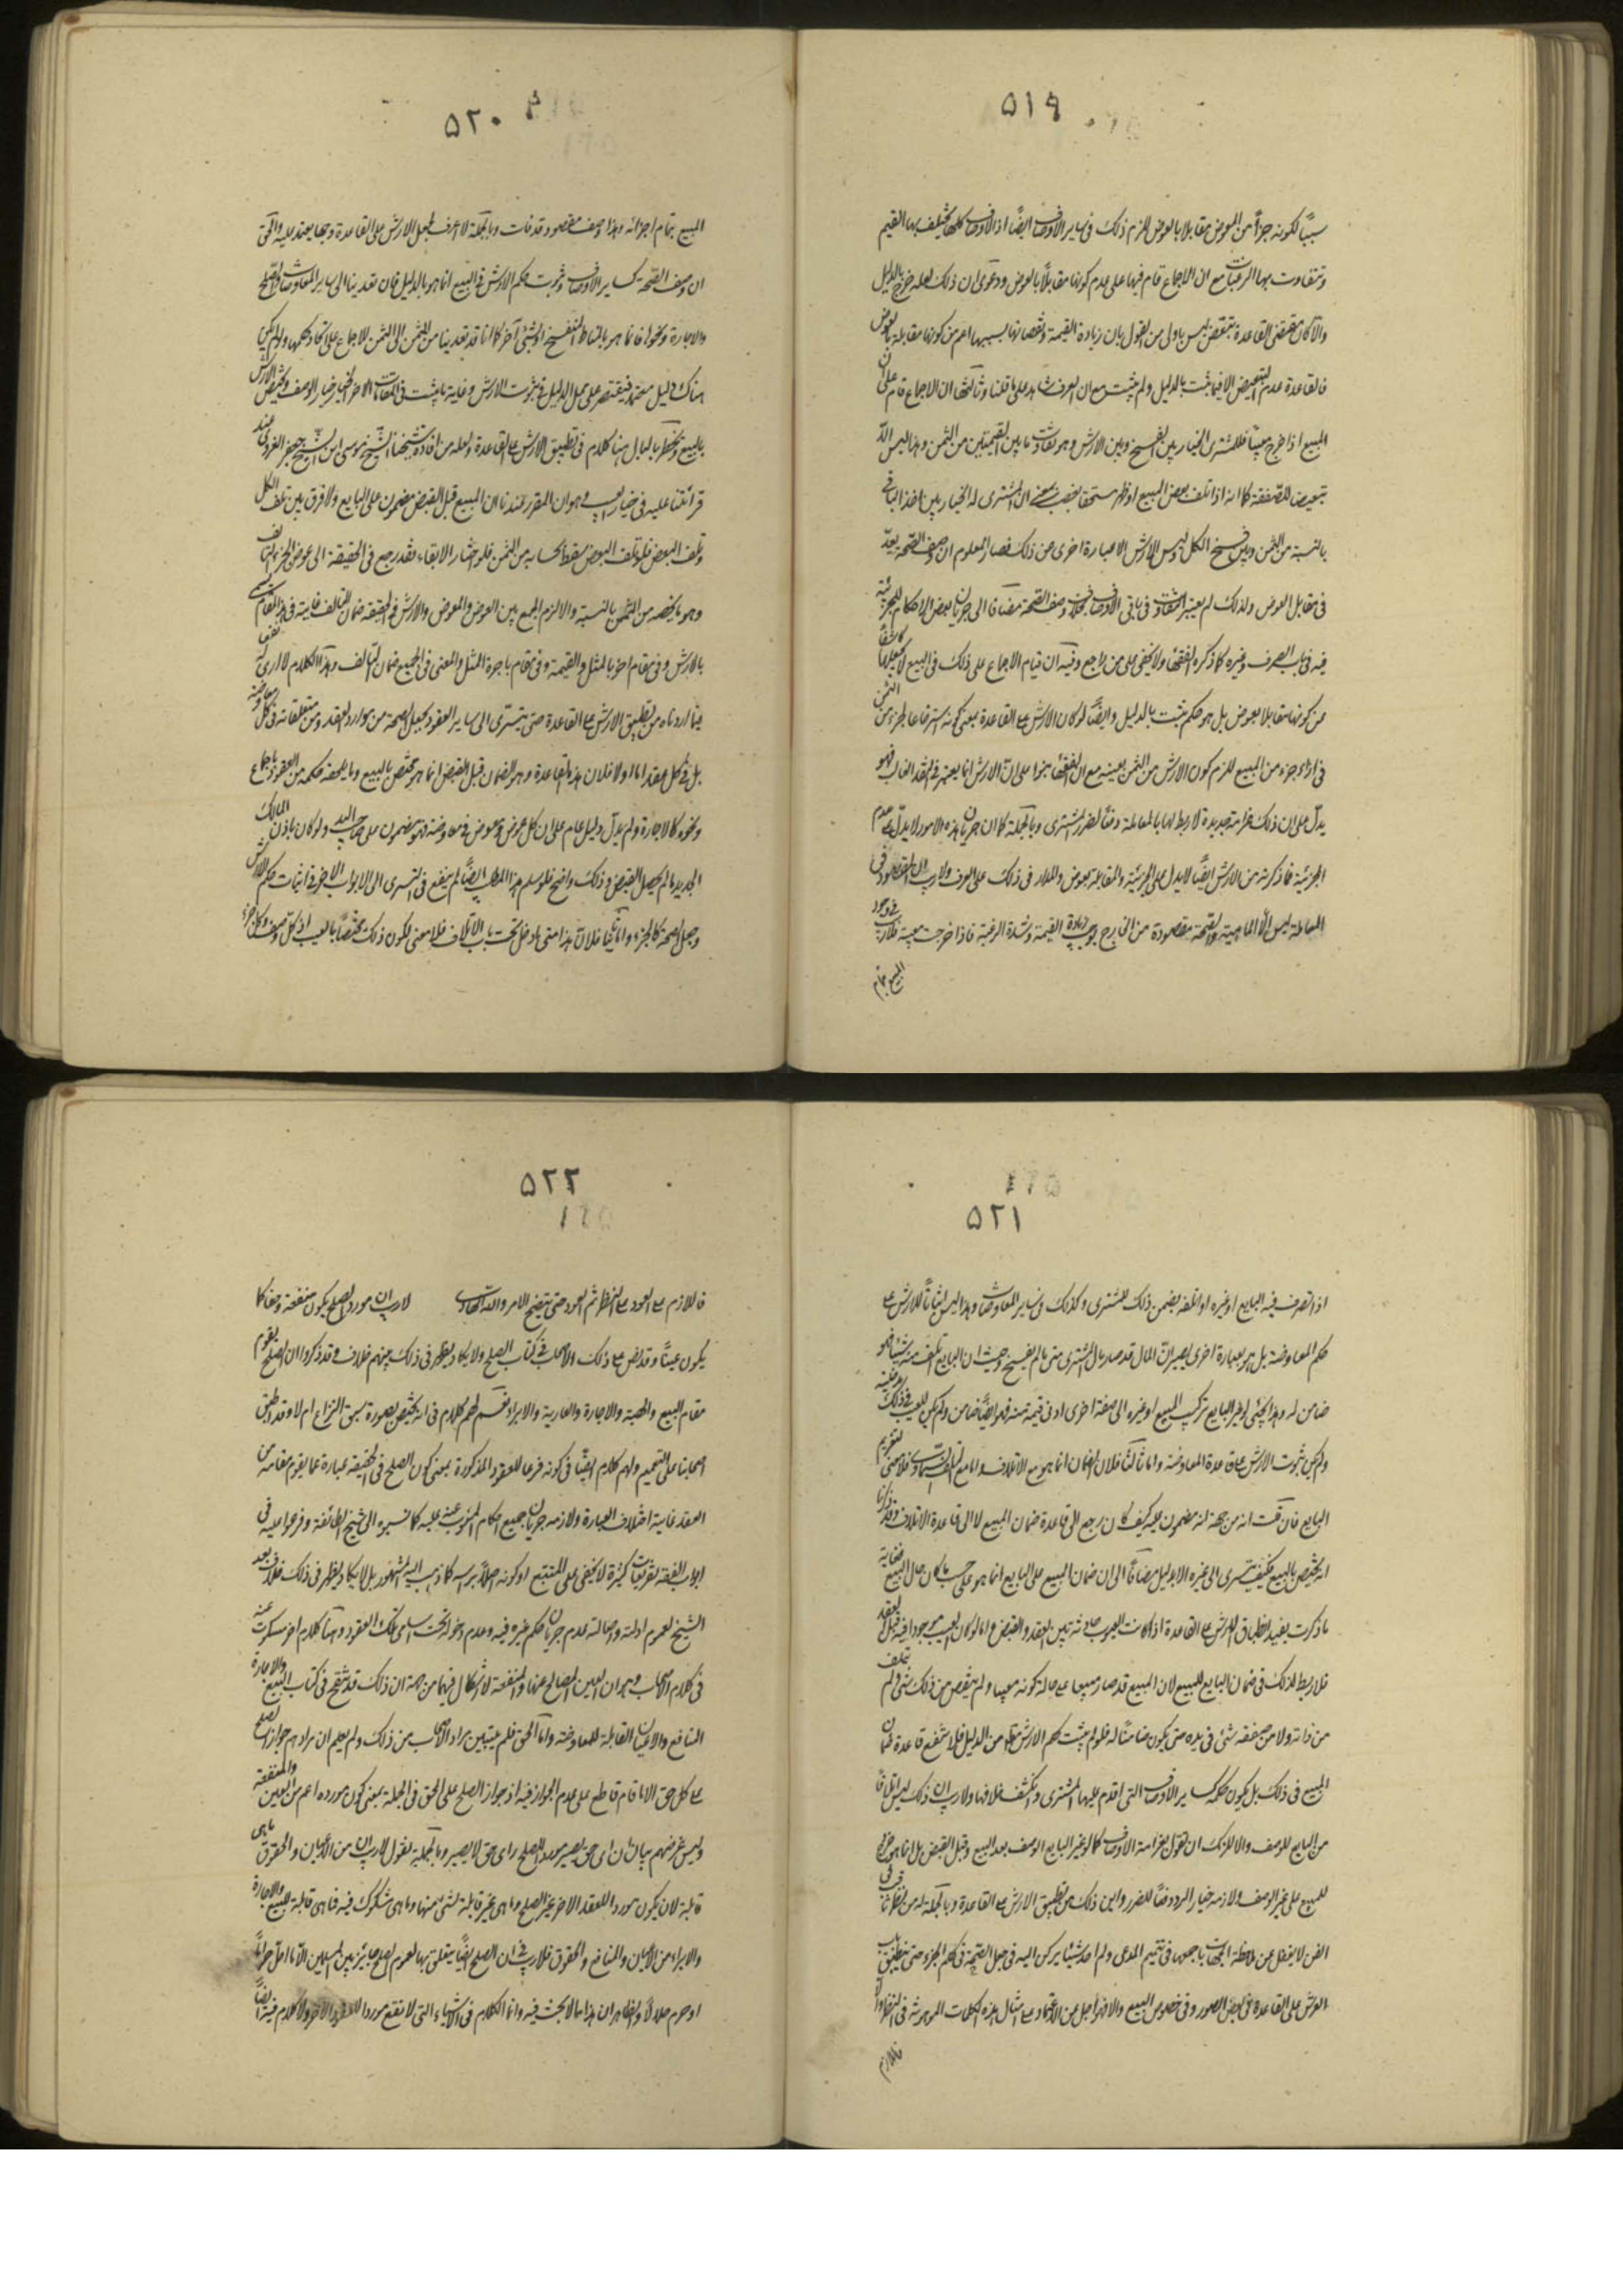 ۵۱۹
سببًا لكونه جزأً من المعوض مقابلا بالعوض للزم ذلك في ساير الأوصاف ايضًا اذ الاوصاف كلها تختلف بها القيم
وتتفاوت بها الرغبات مع ان الاجماع قام فيها على عدم كونها مقابلًا بالعوض ودعوى ان ذلك لعله خرج بالدليل
والا كان مقتضى القاعدة ليس باولى من القول بان زيادة القيمة ونقصانها بسببها اعم من كونها مقابلة بالعوض
فالقاعدة عدم التبعيض الا فيما يثبت بالدليل ولم يثبت مع ان العرف شاهد على ما قلنا وثالثها ان الاجماع قام على ان
المبيع اذا خرج معيبًا فللمشترى الخيار بين الفسخ وبين الارش وهو تفاوت ما بين القيمتين من الثمن وهذا ليس الا
تبعيض للصفقة كما انه اذا تلف بعض المبيع او ظهر مستحقا للغير ان المشترى له الخيار بين اخذ الباقى
بالنسبة من الثمن وبين فسخ الكل وليس الارش الا عبارة اخرى عن ذلك فصار المعلوم ان وصف الصحة يعد
فى مقابل العوض ولذلك لم يعتبر التفاوت فى باقى الاوصاف بخلاف وصف الصحة مضافا الى جريان بعض الاحكام للجزئية
فيه فى باب الصرف وغيره كما ذكره الفقهاء ولا يخفى على من راجع وفيه ان قيام الاجماع على ذلك فى البيع لا يجعلها كاشفًا
عن كونها مقابلا بعوض بل هو حكم يثبت بالدليل وايضًا لو كان الارش على القاعدة بمعنى كونه استرجاعا لجزء من الثمن
فى ازاء جزء من المبيع للزم كون الارش من الثمن بعينه مع ان الفقهاء بنوا على ان الارش انما يعتبر فى النقد الغالب فهو
يدل على ان ذلك غرامة جديدة لا ربط لها بالمعاملة دفعًا لضرر المشترى وبالجملة كما ان جريان هذه الامور لا يدل على عدم
الجزئية فما ذكرته من الارش ايضًا لا يدل على الجزئية والمقابلة بعوض والمدار فى ذلك على العرف ولا ريب ان المقصود فى
المعاملة ليس الا الماهية والصحة مقصودة من الخارج يوجب زيادة القيمة وشدة الرغبة فاذا خرجت معيبة فلا ريب فى وجود
المبيع بتمام
۵۲۰
المبيع بتمام اجزائه وهذا وصف مقصود قد فات وبالجملة لا اعرف لجعل الارش على القاعدة وجها يعتمد عليه والحق
ان وصف الصحة كساير الاوصاف وثبوت حكم الارش فى البيع انما هو بالدليل فان تعدينا الى ساير المعاوضات والصلح
والاجارة ونحوها فانما هو بالمناط المنقح او لشئ آخر كما انا قد تعدينا من المثمن الى الثمن للاجماع على اتحاد حكمها ولو لم يكن
هناك دليل معتمد فيقتصر على محل الدليل فى ثبوت الارش وغاية ما يثبت فى المقامات الاخر الخيار خيار الوصف ويختص الارش
بالبيع ويخطر بالبال هنا كلام فى تطبيق الارش على القاعدة ولعله من افادة شيخنا الشيخ موسى ابن الشيخ جعفر الغروى عند
قرائتنا عليه فى خيار العيب وهو ان المقرر عندنا ان المبيع قبل القبض مضمون على البايع ولا فرق بين تلف الكل
وتلف البعض فلو تلف البعض سقط بحسابه من الثمن فلو اختار الابقاء فقد رجع فى الحقيقة الى عوض الجزء التالف
وهو ما يخصه من الثمن بالنسبة والا لزم الجمع بين العوض والمعوض والارش فى الحقيقة ضمان للتالف غايته فى هذا المقام يسمى
بالارش وفى مقام اخر بالمثل والقيمة وفى مقام باجرة المثل والمعنى فى الجميع ضمان التالف وهذا الكلام لا ارى له نفعا
فيما اردناه من تطبيق الارش على القاعدة حتى يتسرى الى ساير العقود كجعل الصحة من موارد العقد ومن متعلقاته فى كل معاوضة
بل فى كل عقد اما اولا فلان هذه القاعدة وهو الضمان قبل القبض انما هو مختص بالبيع وما يلحقه حكمه من العقود باجماع
ونحوه كالاجارة ولم يدل دليل عام على ان كل عوض ومعوض فى معاوضة فهو مضمون على صاحب اليد ولو كان باذن المالك
الجديد ما لم يحصل القبض وذلك واضح فلو سلم هذا المطلب ايضًا لم ينفع فى التسرى الى الابواب الاخر فى اثبات حكم الارش
وجعل الصحة كالجزء واما ثانيًا فلان هذا متى ما دخل تحت باب الاتلاف فلا معنى لكون ذلك مختصًا بالعيب اذ كل وصف وكل جزء
۵۲۱
اذا تصرف فيه البايع او غيره او اتلفه يضمن ذلك للمشترى وكذلك فى ساير المعاوضات وهذا ليس اثباتًا للارش على
حكم المعاوضة بل هو بعبارة اخرى يصير ان المال قد صار مال المشترى متى ما لم يفسخ وحيث ان البايع اتلف منه شيئا فهو
ضامن له وهذا كما لو غير البايع تركيب المبيع او غيره الى صفة اخرى ادنى قيمة منه فهو ايضًا ضامن ولم يكن للعيب فى ذلك مدخلية
ولم يكن ثبوت الارش على قاعدة المعاوضة واما ثالثًا فلان الضمان انما هو مع الاتلاف واما مع التلف السماوى فلا معنى لتغريم
البايع فان قلت انه من جهة انه مضمون عليه كيف كان رجع الى قاعدة ضمان المبيع لا الى قاعدة الاتلاف وقد ذكرنا
انه يختص بالبيع فكيف يتسرى الى غيره الا بدليل مضافًا الى ان ضمان المبيع على البايع انما هو على حسب ما كان حال البيع فغاية
ما ذكرت يفيد انطباق الارش على القاعدة اذا كانت العيوب حادثة بين العقد والقبض واما لو كان العيب موجودا فيه قبل العقد
فلا ربط لذلك فى ضمان البايع للمبيع لان المبيع قد صار مبيعا على حالة كونه معيبا ولم ينقص من ذلك شئ ولم يتلف
من ذاته ولا من صفته شئ فى يده حتى يكون ضامنًا له فلو لم يثبت حكم الارش من الدليل فلا تنفع قاعدة ضمان
المبيع فى ذلك بل يكون حكمه كساير الاوصاف التى اقدم عليها المشترى وانكشف خلافها ولا ريب ان ذلك ليس اتلافًا
من البايع للوصف والا للزمك ان تقول بغرامة الاوصاف كما لو غير البايع الوصف بعد البيع وقبل القبض بل انما هو
للمبيع على غير الوصف ولازمه خيار الرد دفعًا للضرر واين ذلك من تطبيق الارش على القاعدة وبالجملة من نظر ثاقب فى
الفن لا يغفل عن ملاحظة الجهات باجمعها فى تتميم المدعى ولم اجد شيئا يركن اليه فى جعل الصحة فى حكم الجزء حتى ينطبق باب
العوض على القاعدة فى بعض الصور وفى خصوص البيع والافهام اجل من الاعتماد على امثال هذه الكلمات الموهمة فى النظر
فاللازم
۵۲۲
فاللازم على العود على النظر ثم العود حتى يتضح الامر والله الهادى لا ريب ان مورد الصلح يكون منفعة وحقا كما
يكون عينًا وقد نص على ذلك الاصحاب فى كتاب الصلح ولا يكاد يظهر فى ذلك بينهم خلاف وقد ذكروا ان الصلح يقوم
مقام البيع والهبة والاجارة والعارية والابراء نعم لهم كلام فى انه يختص بصورة سبق النزاع ام لا وقد اطبق
اصحابنا على التعميم ولهم كلام ايضًا فى كونه فرعا للعقود المذكورة بمعنى كون الصلح فى الحقيقة عبارة عما يقوم مقامه من
العقد غايته اختلاف العبارة ولازمه جريان جميع احكام المنوب عنه عليه كما نسبوه الى شيخ الطائفة وفرعوا عليه فى
ابواب الفقه تفريعات كثيرة لا يخفى على المتتبع او كونه اصلًا براسه كما ذهب اليه المشهور بل لا يكاد يظهر فى ذلك خلاف بعد
الشيخ لعموم ادلته واصالة عدم جريان حكم غيره فيه وعدم دخوله تحت اسامى تلك العقود وهنا كلام اخر مسكوت عنه
فى كلام الاصحاب وهو ان العين المصالح عنها والمنفعة لا اشكال فيهما من جهة ان ذلك قد تنقح فى كتاب البيع والاجارة
المنافع والاعيان القابلة للمعاوضة واما الحق فلم يتبين مراد الاصحاب من ذلك ولم يعلم ان مرادهم جواز الصلح
على كل حق الا ما قام قاطع على عدم الجواز فيه او جواز الصلح على الحق فى الجملة بمعنى كون مورده اعم من العين والمنفعة
وليس غرضهم بيان ان اى حق يصير موردا للصلح واى حق لا يصير وبالجملة نقول لا ريب ان من الاعيان والحقوق ما هى
قابلة لان يكون موردا للعقد الاخر غير الصلح وما هى غير قابلة لشئ منها وما هى مشكوك فيه فما هى قابلة للبيع والاجارة
والابراء من الاعيان والمنافع والحقوق فلا ريب فى ان الصلح ايضًا يتعلق بها لعموم الصلح جائز بين المسلمين الا ما احل حرامًا
او حرم حلالًا والظاهر ان هذا مما لا بحث فيه وانما الكلام فى الاشياء التى لا تقع موردا للعقود الاخر ولا كلام فيه ايضًا